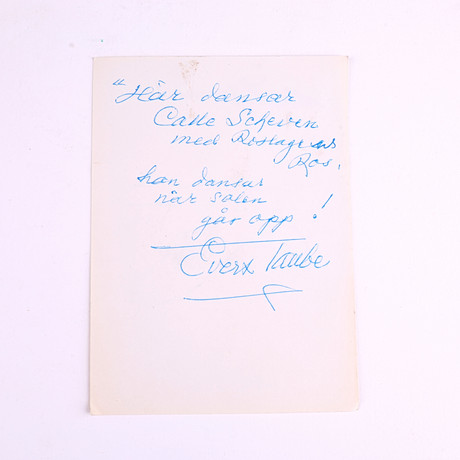 "Här dansar
Calle Scheven
med Roslagens
Ros,
han dansar
när solen
går opp!
Evert Taube